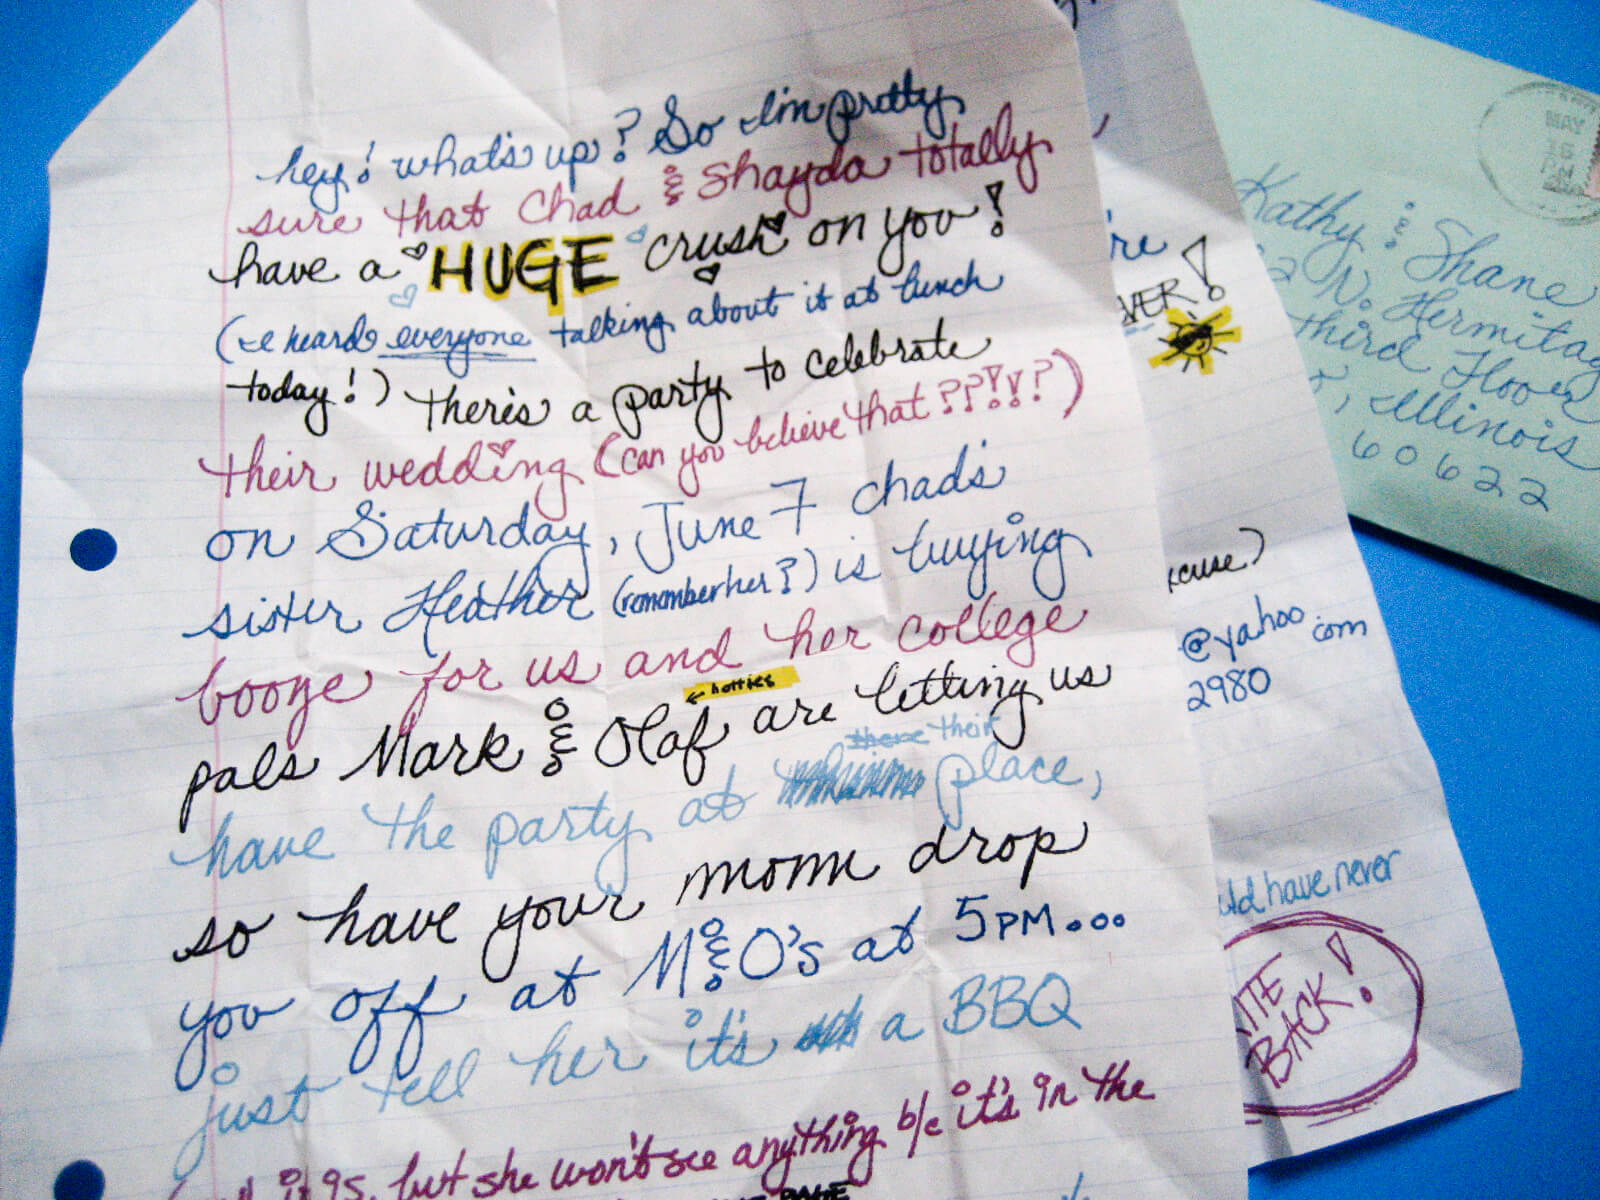 hey! what's up? So I'm pretty
sure that Chad & Shayda totally
have a HUGE crush on you!
(I heard everyone talking about it at lunch
today!) There's a party to celebrate
their wedding (can you believe that ??!!?)
on Saturday, June 7 chad's
sister Heather (remember her?) is buying
booze for us and her college
← hotties
pals Mark & Olaf are letting us
there their
have the party at place,
so have your mom drop
you off at M&O's at 5PM...
just tell her it's a BBQ
it is, but she won't see anything b/c it's in the
PAGE
're
VER!
xcuse)
@yahoo.com
2980
uld have never
ITE
BACK!
MAY
16
PM
Kathy & Shane
2 N. Hermitag
Third Floor
, Illinois
60622